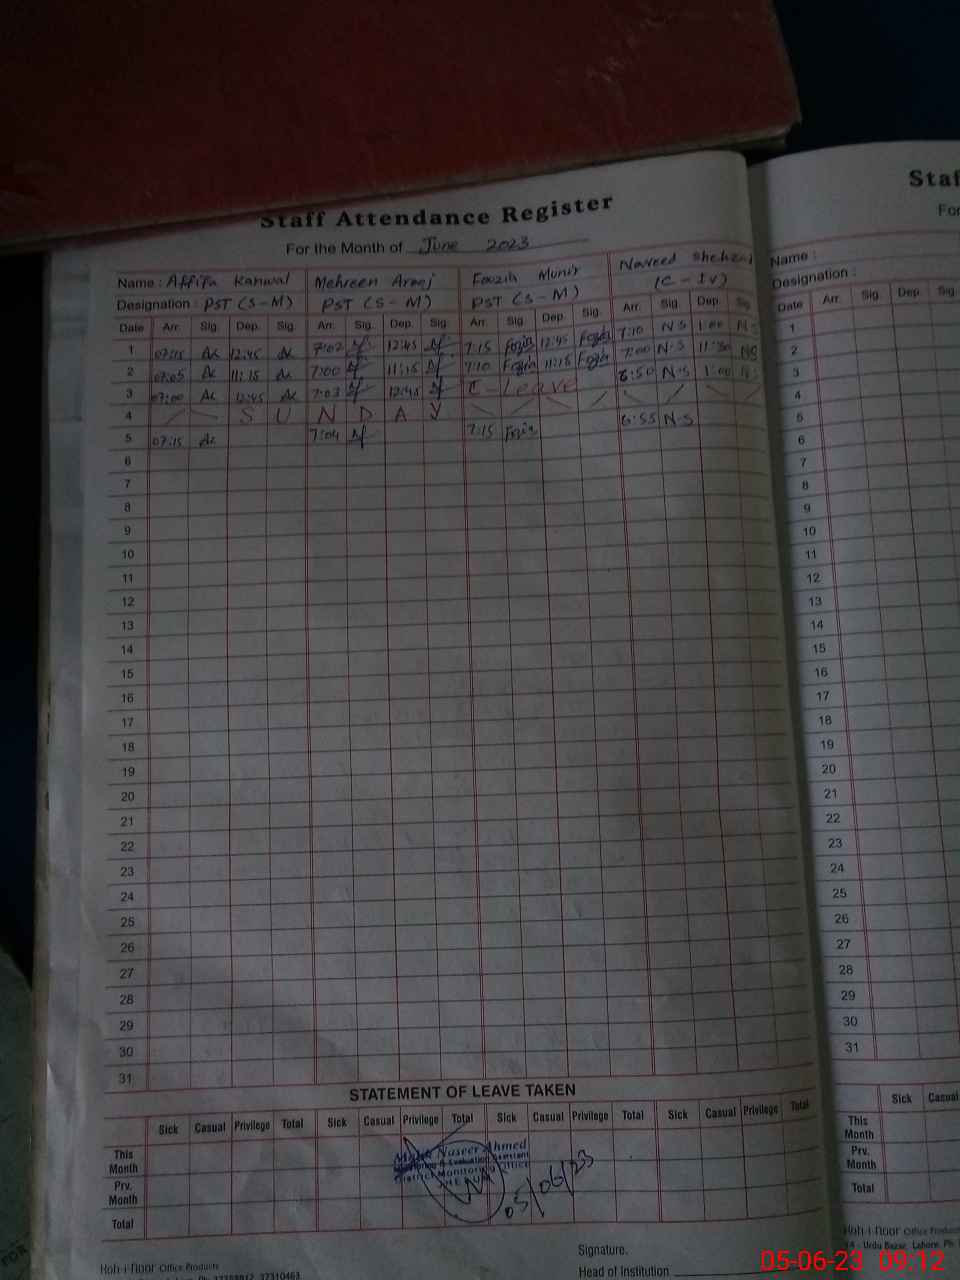 Staff Attendance Register
For the Month of June 2023
Name : Affifa Kanwal Mehreen Areej Fouzih Munir Naveed Shehzad
Designation : PST (S-M) PST (S-M) PST (S-M) (C-IV)
Date Arr. Sig. Dep. Sig. Arr. Sig. Dep. Sig. Arr. Sig. Dep. Sig. Arr. Sig. Dep. Sig.
1 07:15 Ak 12:45 Ak 7:02 12:45 7:15 Fozia 12:45 Fozia 7:10 N-S 1:00 N-S
2 07:05 Ak 11:15 Ak 7:00 11:15 7:10 Fozia 11:15 Fozia 7:00 N-S 11:30 NS
3 07:00 Ak 12:45 Ak 7:03 12:45 C-Leave 6:50 N-S 1:00 N-S
4 S U N D A Y
5 07:15 Ak 7:04 7:15 Fozia 6:55 N-S
6
7
8
9
10
11
12
13
14
15
16
17
18
19
20
21
22
23
24
25
26
27
28
29
30
31
STATEMENT OF LEAVE TAKEN
Sick Casual Privilege Total Sick Casual Privilege Total Sick Casual Privilege Total Sick Casual Privilege Total
This Month
Prv. Month
Total
Naseer Ahmed
Monitoring & Evaluation Assistant
District Monitoring Office
JHELUM
05/06/23
Signature.
Head of Institution
Koh-i-Noor Office Products
Staf
For
Name :
Designation :
Date Arr. Sig. Dep. Sig.
1
2
3
4
5
6
7
8
9
10
11
12
13
14
15
16
17
18
19
20
21
22
23
24
25
26
27
28
29
30
31
Sick Casual
This Month
Prv. Month
Total
Koh-i-Noor Office Products
14 - Urdu Bazar, Lahore. Ph.
FOR
05-06-23 09:12